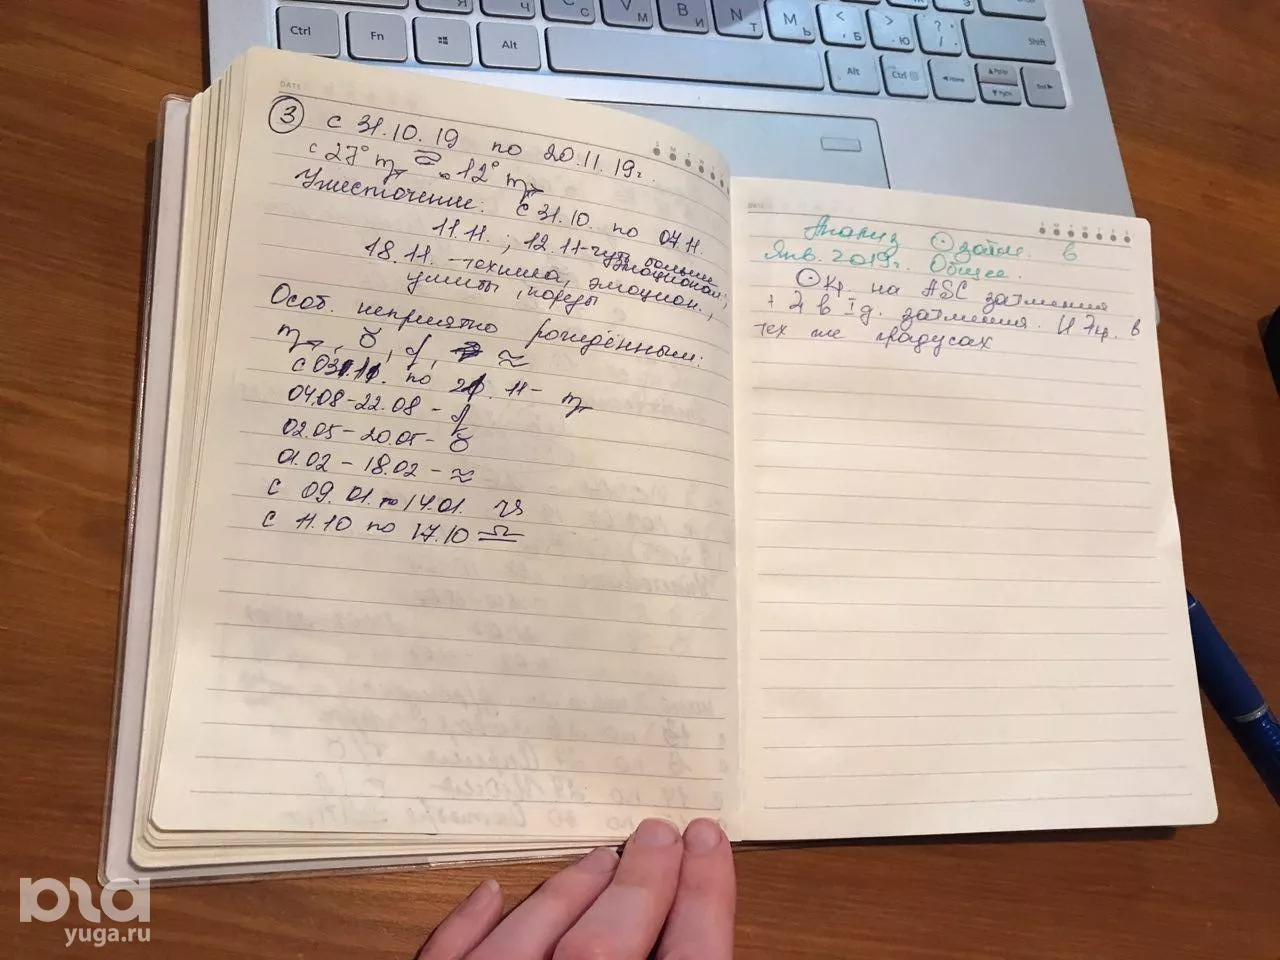 Ctrl Fn Alt Alt Ctrl Shift
DATE
③ с 31.10.19 по 20.11.19г.
с 27° ♏ 12° ♏
Ужесточение: с 31.10. по 07.11.
11.11.; 12.11 - чуть больше эмоционал.;
18.11. - техника, эмоцион.,
умиты, породы
Особ. неприятно рождённым:
♏, ♉, ♌, ♒
с 03.11. по 21.11 - ♏
04.08 - 22.08 - ♌
02.05 - 20.05 - ♉
01.02 - 18.02 - ♒
с 09.01. по 14.01. ♑
с 11.10 по 17.10 ♎
Анализ ☉ затм. в
Янв. 2019г. Общее.
на ASC затмения
+ 4 в I д. затмения. в
тех же градусах
yuga.ru